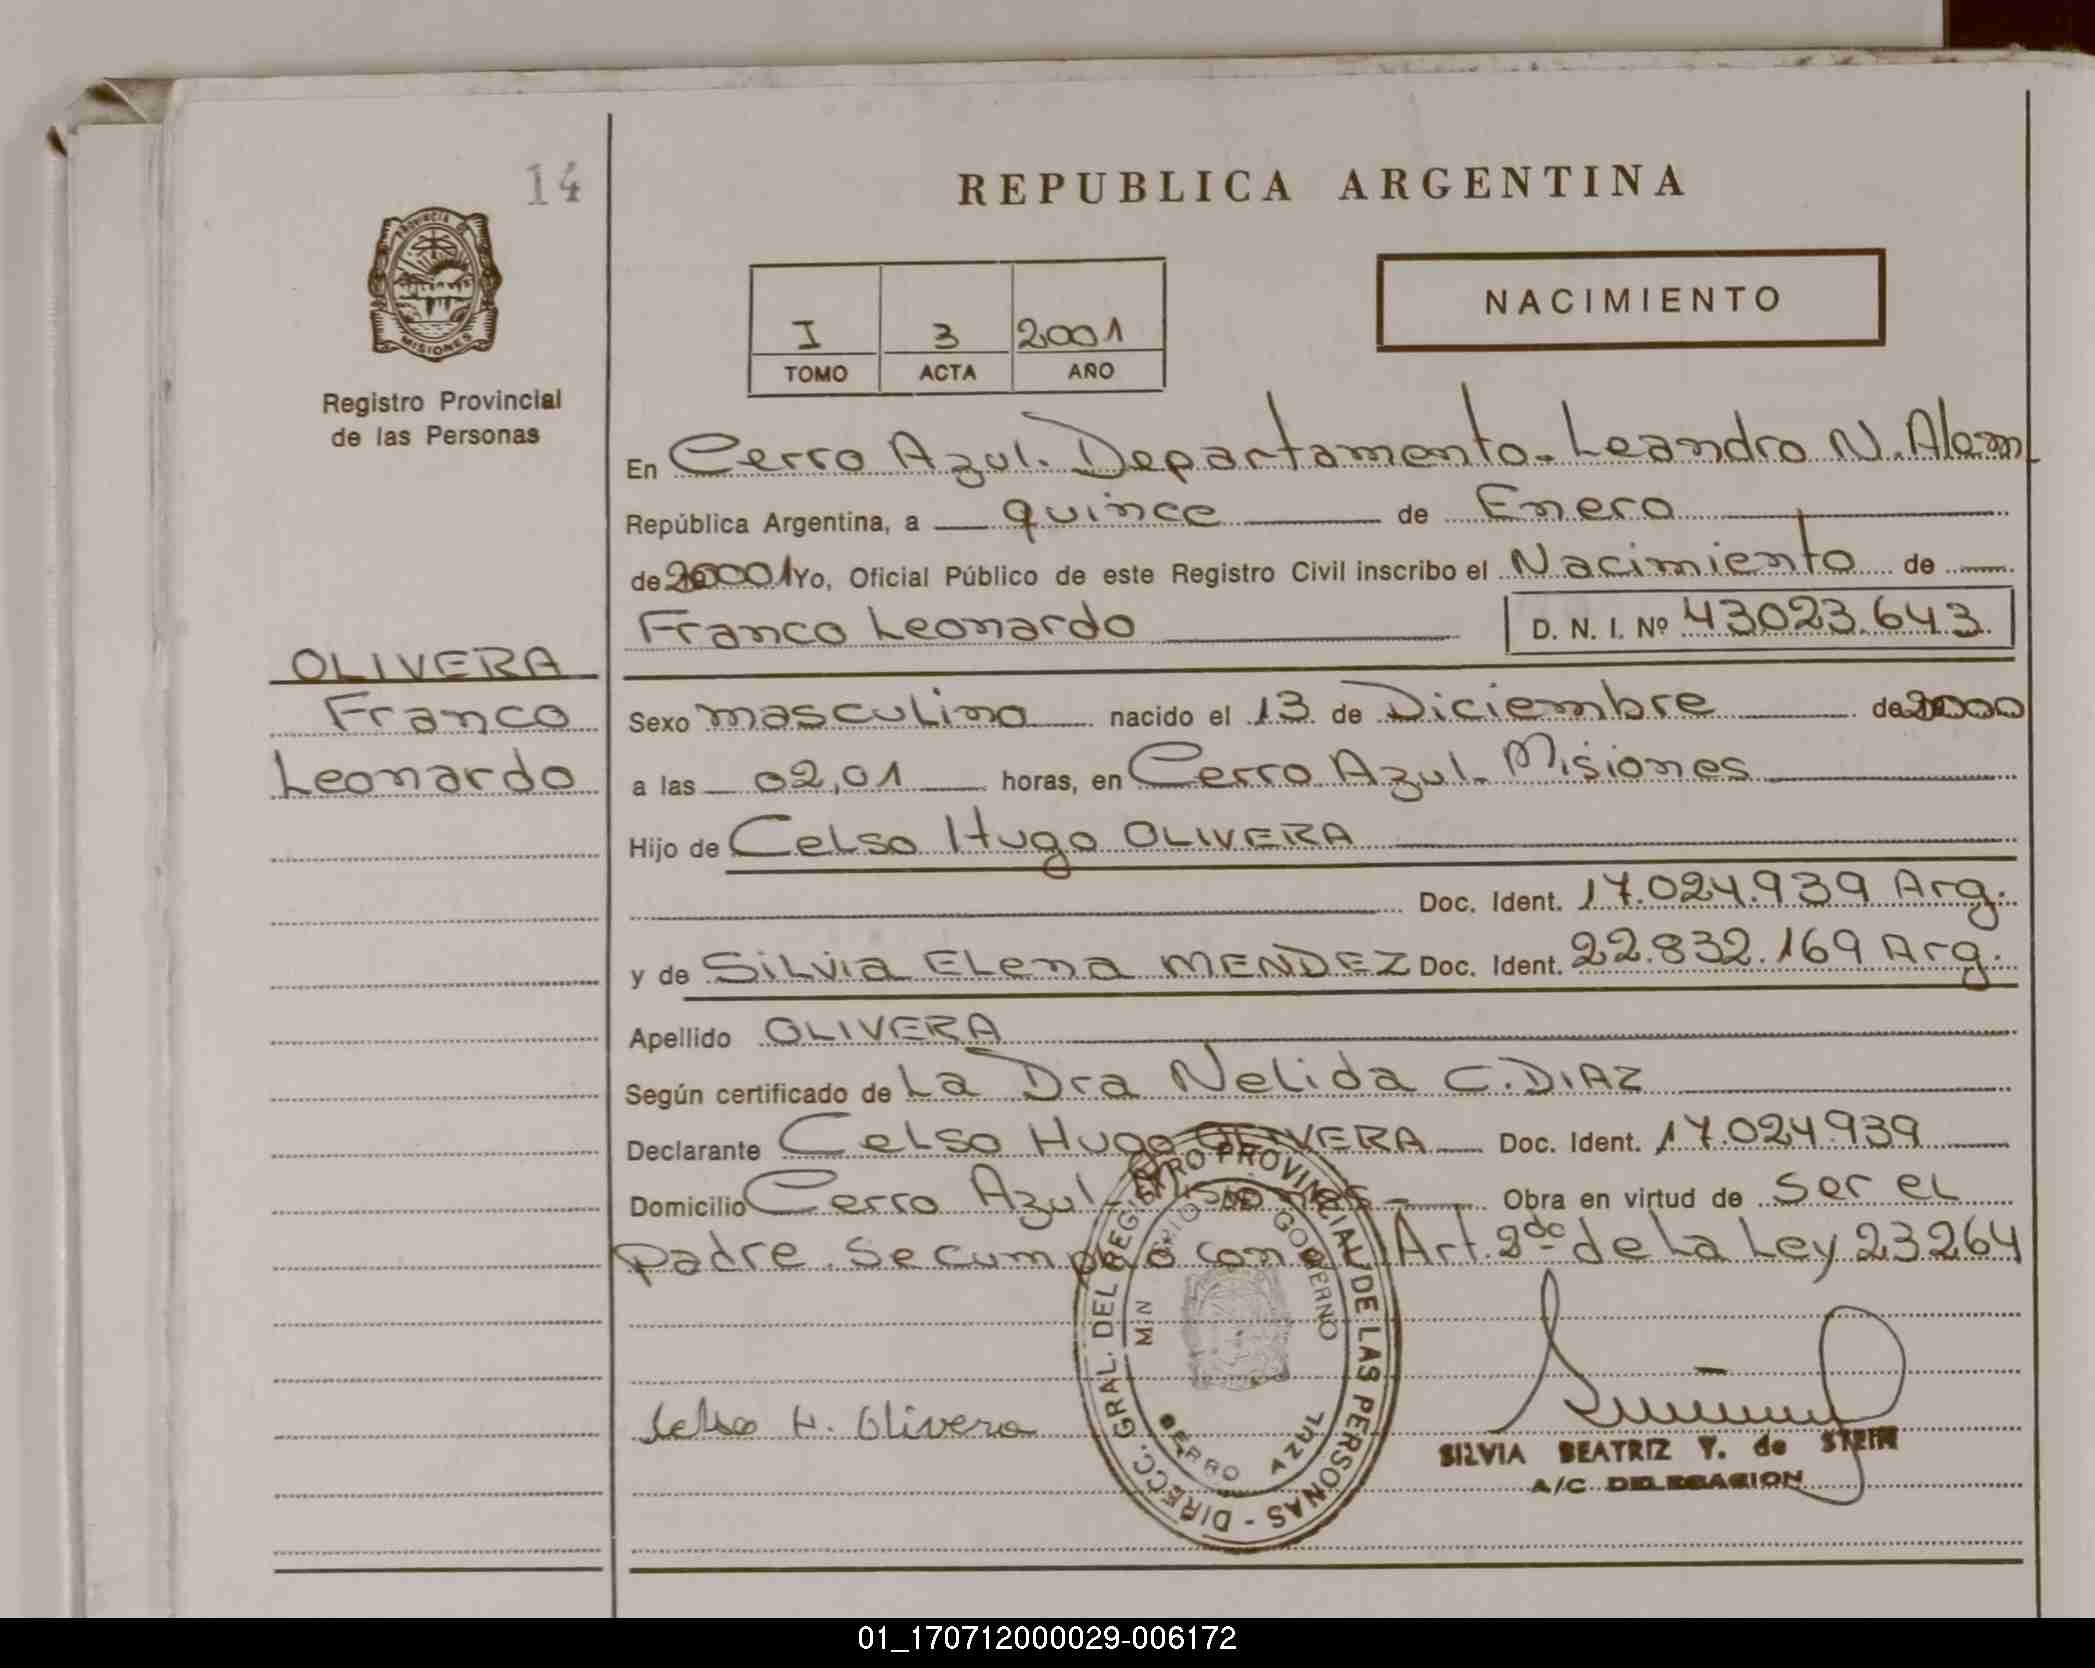 14
REPUBLICA ARGENTINA
PROVINCIA DE
MISIONES
NACIMIENTO
I 3 2001
TOMO ACTA AÑO
Registro Provincial
de las Personas
En Cerro Azul. Departamento. Leandro N. Alem
República Argentina, a quince de Enero
de 2001 Yo, Oficial Público de este Registro Civil inscribo el Nacimiento de
Franco Leonardo D. N. I. Nº 43023.643
OLIVERA
Franco
Leonardo
Sexo masculino nacido el 13 de Diciembre de 2000
a las 02,01 horas, en Cerro Azul. Misiones
Hijo de Celso Hugo OLIVERA
Doc. Ident. 17.024.939 Arg.
y de Silvia Elena MENDEZ Doc. Ident. 22.832.169 Arg.
Apellido OLIVERA
Según certificado de La Dra Nelida C. DIAZ
Declarante Celso Hugo OLIVERA Doc. Ident. 17.024939
Domicilio Cerro Azul - Misiones - Obra en virtud de ser el
padre. Se cumplio con el Art. 2do de la Ley 23264
DIRECC. GRAL. DEL REGISTRO PROVINCIAL DE LAS PERSONAS -
MINISTERIO DE GOBIERNO
CERRO AZUL
Celso H. Olivera
SILVIA BEATRIZ Y. de STEIN
A/C DELEGACION
01_170712000029-006172